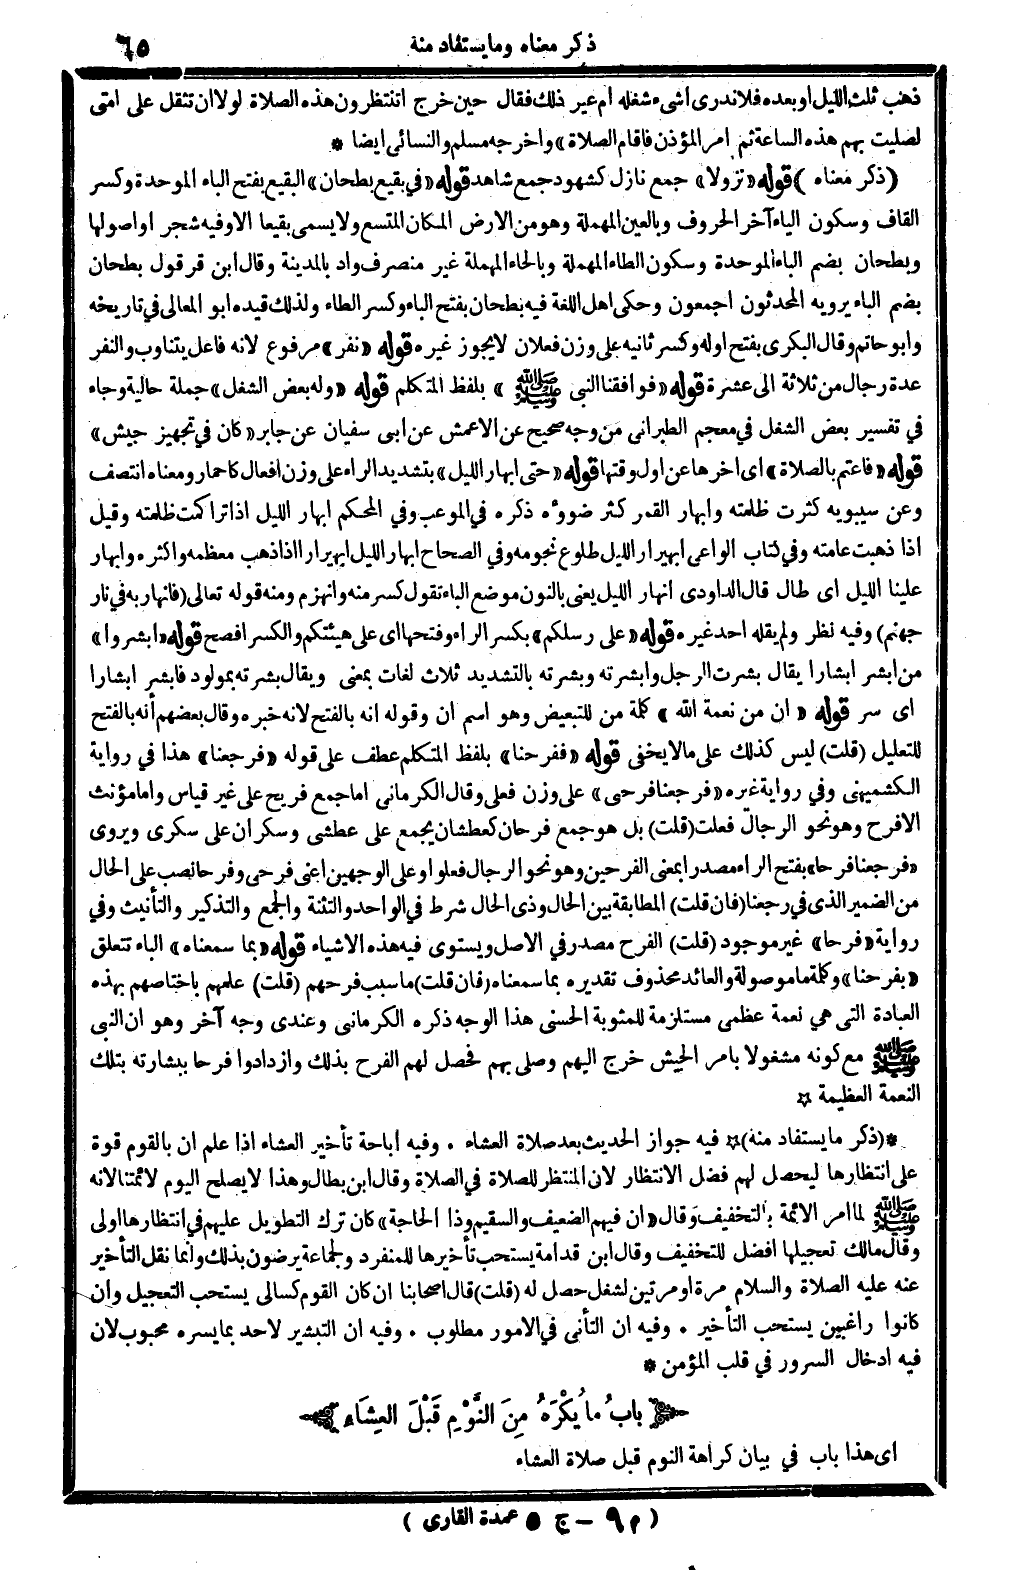 ذكر معناه ومايستفاد منه
٦٥
ذهب ثلث الليل اوبعده فلاندرى اشىء شغله ام غير ذلك فقال حين خرج اتنتظرون هذه الصلاة لولا ان تثقل على امتى
لصليت بهم هذه الساعة ثم امر المؤذن فاقام الصلاة» واخرجه مسلم والنسائى ايضا *
(ذكر معناه) قوله «نزولا» جمع نازل كشهود جمع شاهد قوله «في بقيع بطحان» البقيع بفتح الباء الموحدة وكسر
القاف وسكون الياء آخر الحروف وبالعين المهملة وهومن الارض المكان المتسع ولايسمى بقيعا الاوفيه شجر اواصولها
وبطحان بضم الباء الموحدة وسكون الطاء المهملة وبالحاء المهملة غير منصرف واد بالمدينة وقال ابن قرقول بطحان
بضم الباء يرويه المحدثون اجمعون وحكى اهل اللغة فيه بطحان بفتح الباء وكسر الطاء ولذلك قيده ابو المعالى في تاريخه
وابو حاتم وقال البكرى بفتح اوله وكسر ثانيه على وزن فعلان لايجوز غيره قوله «نفر» مرفوع لانه فاعل يتناوب والنفر
عدة رجال من ثلاثة الى عشرة قوله «فوافقنا النبى ﷺ » بلفظ المتكلم قوله «وله بعض الشغل» جملة حالية وجاء
في تفسير بعض الشغل في معجم الطبرانى من وجه صحيح عن الاعمش عن ابى سفيان عن جابر «كان في تجهيز جيش»
قوله «فاعتم بالصلاة» اى اخرها عن اول وقتها قوله «حتى ابهار الليل» بتشديد الراء على وزن افعال كاحمار ومعناه انتصف
وعن سيبويه كثرت ظلمته وابهار القمر كثر ضوؤه ذكره في الموعب وفي المحكم ابهار الليل اذا تراكمت ظلمته وقيل
اذا ذهبت عامته وفي كتاب الواعى ابهيرار الليل طلوع نجومه وفي الصحاح ابهار الليل ابهيرارا اذا ذهب معظمه واكثره وابهار
علينا الليل اى طال قال الداودى انهار الليل يعنى بالنون موضع الباء تقول كسر منه وانهزم ومنه قوله تعالى (فانهار به في نار
جهنم) وفيه نظر ولم يقله احد غيره قوله «على رسلكم» بكسر الراء وفتحها اى على هيئتكم والكسر افصح قوله «ابشروا»
من ابشر ابشارا يقال بشرت الرجل وابشرته وبشرته بالتشديد ثلاث لغات بمعنى ويقال بشرته بمولود فابشر ابشارا
اى سر قوله «ان من نعمة الله» كلمة من للتبعيض وهو اسم ان وقوله انه بالفتح لانه خبره وقال بعضهم أنه بالفتح
للتعليل (قلت) ليس كذلك على مالايخفى قوله «ففرحنا» بلفظ المتكلم عطف على قوله «فرجعنا» هذا في رواية
الكشميهنى وفي رواية غيره «فرجعنا فرحى» على وزن فعلى وقال الكرمانى اما جمع فريح على غير قياس واما مؤنث
الافرح وهو نحو الرجال فعلت (قلت) بل هو جمع فرحان كعطشان يجمع على عطشى وسكران على سكرى ويروى
«فرجعنا فرحا» بفتح الراء مصدرا بمعنى الفرحين وهو نحو الرجال فعلوا وعلى الوجهين اعنى فرحى وفرحا نصب على الحال
من الضمير الذى في رجعنا (فان قلت) المطابقة بين الحال وذى الحال شرط في الواحد والتثنة والجمع والتذكير والتأنيث وفي
رواية «فرحا» غير موجود (قلت) الفرح مصدر في الاصل ويستوى فيه هذه الاشياء قوله «بما سمعناه» الباء تتعلق
«بفرحنا» وكلمة ما موصولة والعائد محذوف تقديره بما سمعناه (فان قلت) ما سبب فرحهم (قلت) علمهم باختاصهم بهذه
العبادة التى هي نعمة عظمى مستلزمة للمثوبة الحسنى هذا الوجه ذكره الكرمانى وعندى وجه آخر وهو ان النبى
ﷺ مع كونه مشغولا بامر الجيش خرج اليهم وصلى بهم فحصل لهم الفرح بذلك وازدادوا فرحا ببشارته بتلك
النعمة العظيمة ☆
*(ذكر مايستفاد منه)☆ فيه جواز الحديث بعد صلاة العشاء . وفيه اباحة تأخير العشاء اذا علم ان بالقوم قوة
على انتظارها ليحصل لهم فضل الانتظار لان المنتظر للصلاة في الصلاة وقال ابن بطال وهذا لايصلح اليوم لائمتنا لانه
ﷺ لما امر الائمة بالتخفيف وقال «ان فيهم الضعيف والسقيم وذا الحاجة» كان ترك التطويل عليهم في انتظارها اولى
وقال مالك تعجيلها افضل للتخفيف وقال ابن قدامة يستحب تأخيرها للمنفرد ولجماعة يرضون بذلك وانما نقل التأخير
عنه عليه الصلاة والسلام مرة اومرتين لشغل حصل له (قلت) قال اصحابنا ان كان القوم كسالى يستحب التعجيل وان
كانوا راغبين يستحب التأخير . وفيه ان التأنى في الامور مطلوب . وفيه ان التبشير لاحد بمايسره محبوب لان
فيه ادخال السرور في قلب المؤمن *
بابُ ما يُكْرَهُ مِنَ النَّوْمِ قَبْلَ العِشَاءِ
اى هذا باب في بيان كراهة النوم قبل صلاة العشاء
(م ٩ – ج ٥ عمدة القارى)